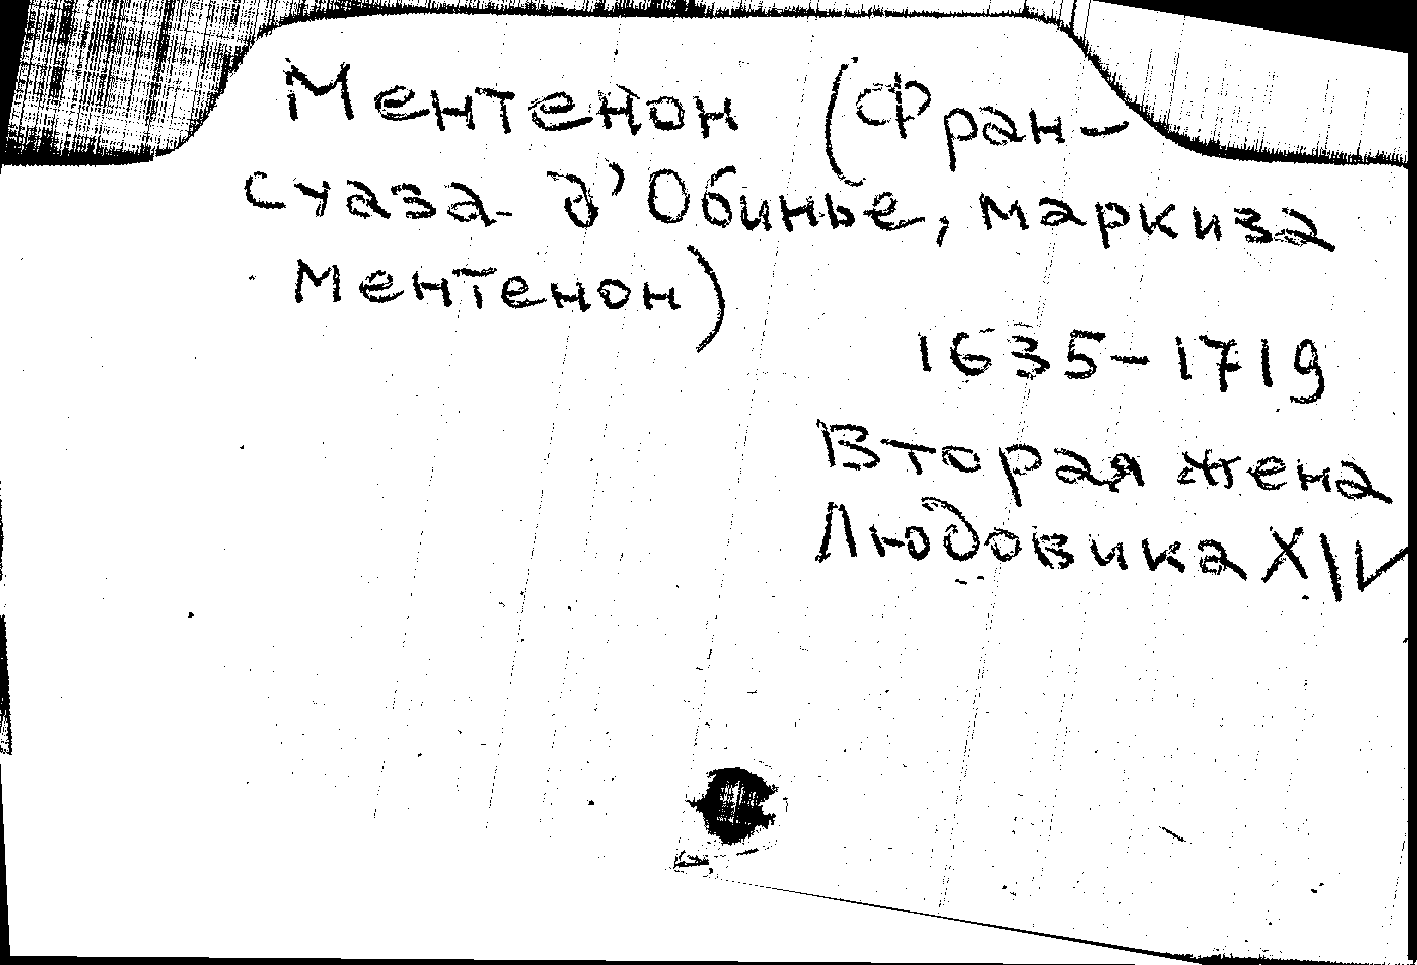 Ментенон (Фран-
суаза д'Обинье, маркиза
Ментенон)
1635-1719
Вторая жена
Людовика XIV